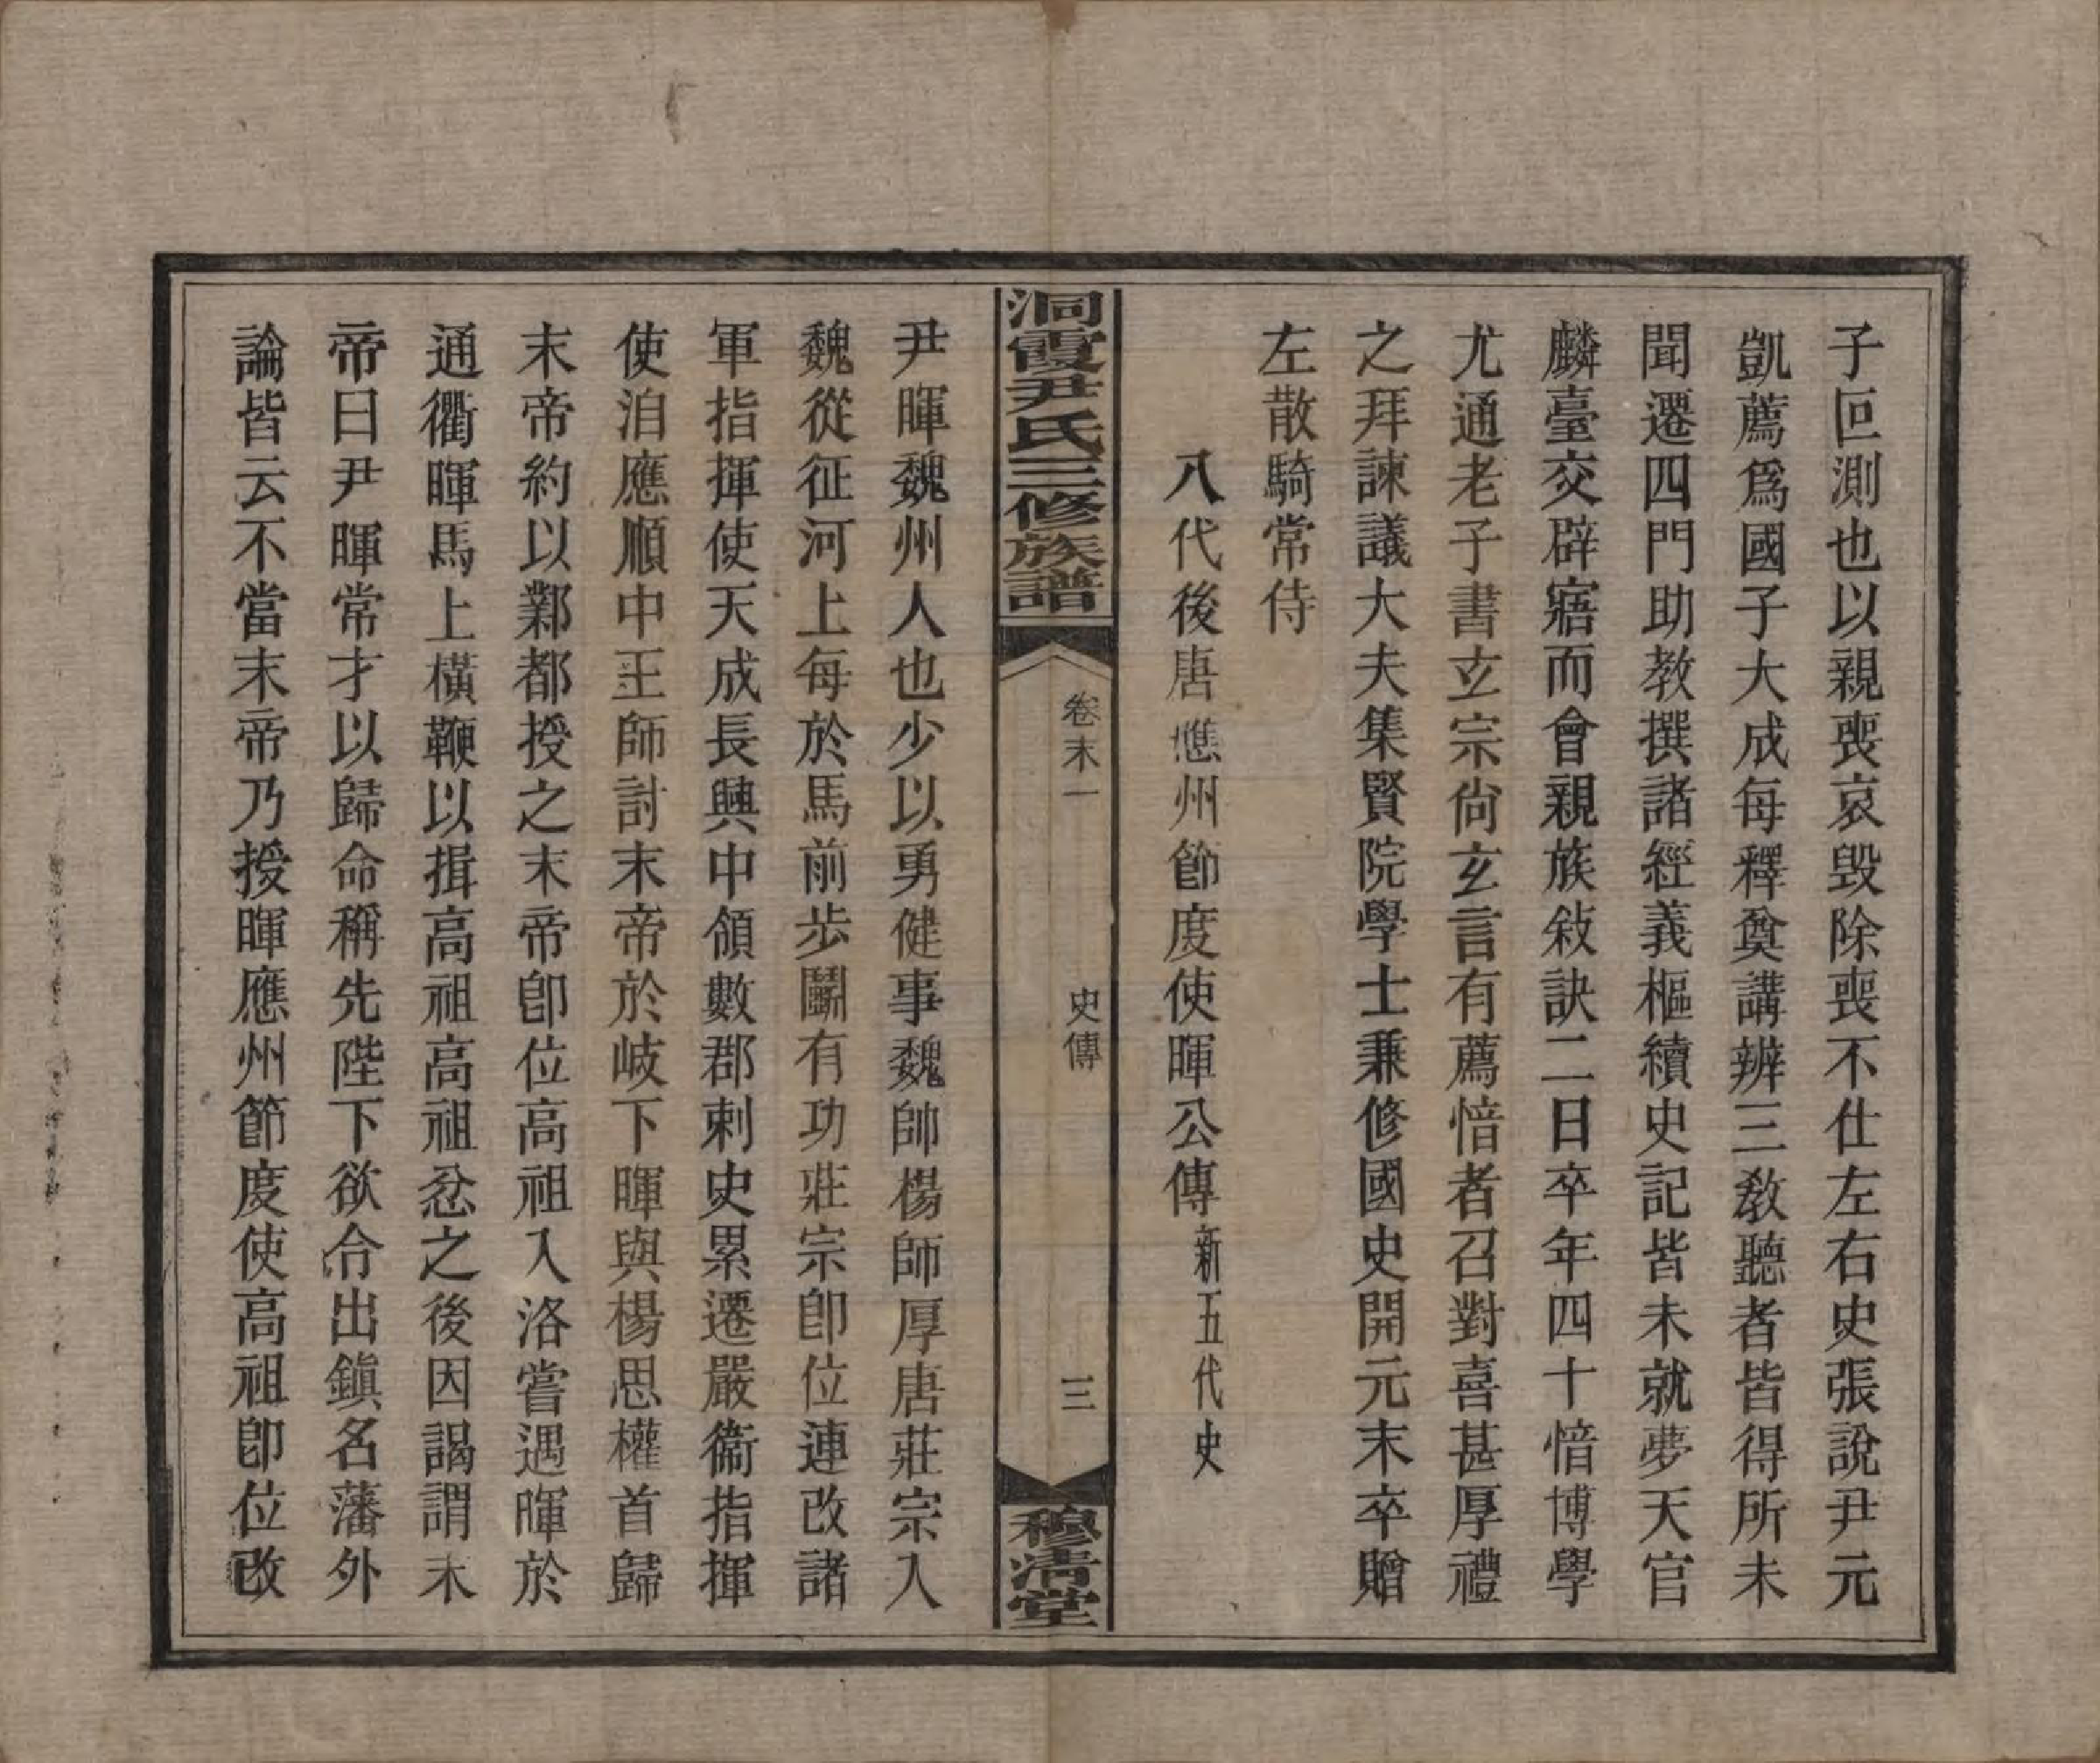 子叵測也以親喪哀毀除喪不仕左右史張說尹元
凱薦爲國子大成每釋奠講辨三敎聽者皆得所未
聞遷四門助敎撰諸經義樞續史記皆未就夢天官
麟臺交辟寤而會親族敍訣二日卒年四十愔博學
尤通老子書玄宗尙玄言有薦愔者召對喜甚厚禮
之拜諫議大夫集賢院學士兼修國史開元末卒贈
左散騎常侍
八代後唐應州節度使暉公傳新五代史
洞霞尹氏三修族譜 卷末一 史傳 三 穆淸堂
尹暉魏州人也少以勇健事魏帥楊師厚唐莊宗入
魏從征河上每於馬前步鬭有功莊宗卽位連改諸
軍指揮使天成長興中領數郡刺史累遷嚴衞指揮
使洎應順中王師討末帝於岐下暉與楊思權首歸
末帝約以鄴都授之末帝卽位高祖入洛嘗遇暉於
通衢暉馬上橫鞭以揖高祖高祖忿之後因謁謂末
帝曰尹暉常才以歸命稱先陛下欲令出鎭名藩外
論皆云不當末帝乃授暉應州節度使高祖卽位改